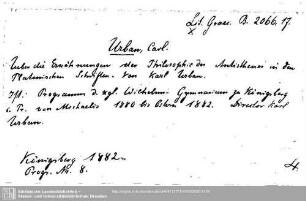 Lit. Graec. B. 2066, 17
Urban, Carl.
Ueber die Erwähnungen der Philosophie des Antisthenes in den
Platonischen Schriften. Von Karl Urban.
Progr. Programm d. kgl. Wilhelms-Gymnasium zu Königsberg
i. Pr. von Michaelis 1880 bis Ostern 1882. Director Karl
Urban.
Königsberg 1882.
Progr. No. 8.